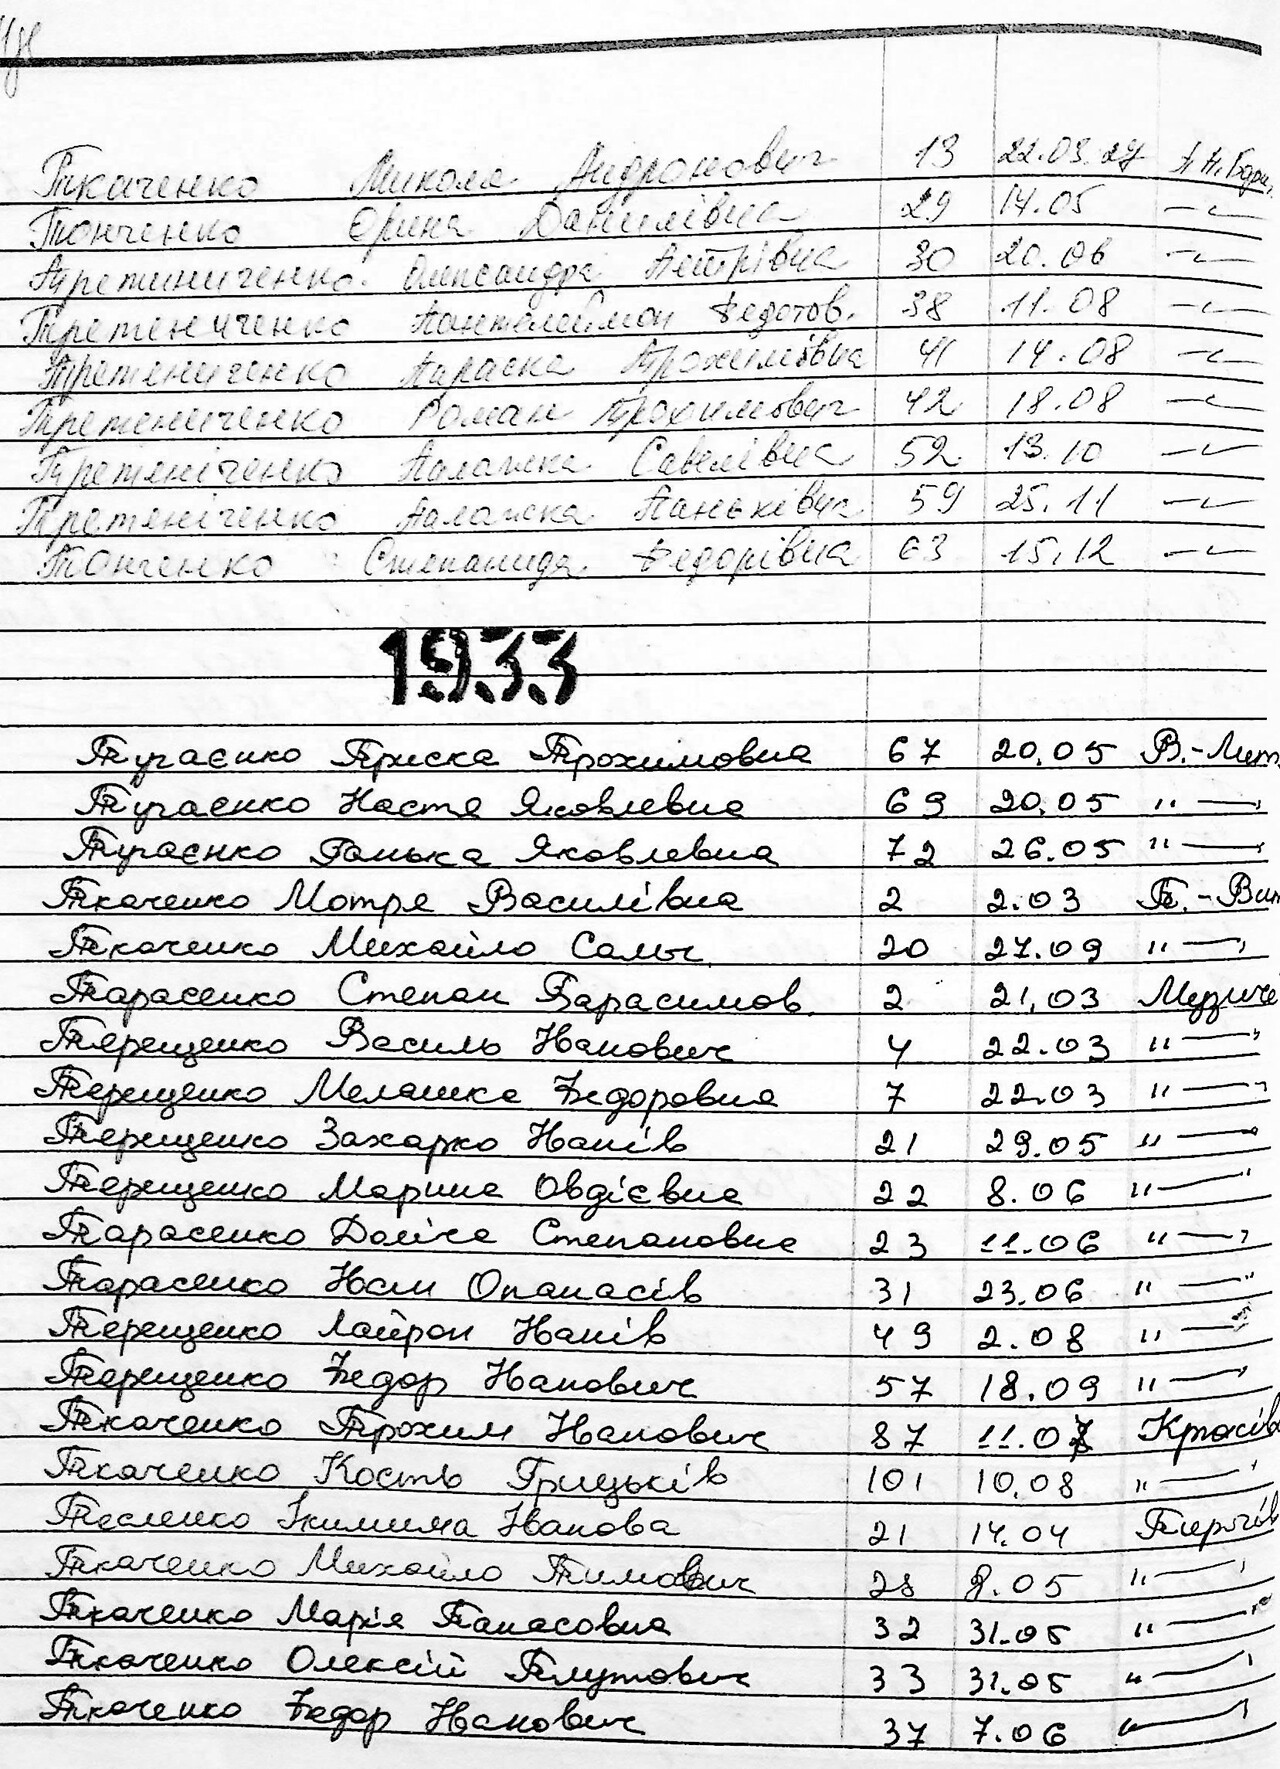 Ткаченко Микола Андронович 13 22.03.27 П.Н.Бари.
Тонченко Орина Данилівна 29 14.05 -"-
Третиниченко Олександра Петрівна 30 20.06 -"-
Третениченко Пантелеймон Федотов. 38 11.08 -"-
Третениченко Параска Трохимівна 41 14.08 -"-
Третениченко Роман Трохимович 42 18.08 -"-
Третяніченко Палажка Савелівна 52 13.10 -"-
Третяніченко Палажка Паньківна 59 25.11 -"-
Тонченко Степанида Федорівна 63 15.12 -"-
1933
Тугаєнко Приска Трохимовна 67 20.05 В.-Лит.
Тугаєнко Настя Яковлевна 69 20.05 "—
Тугаєнко Ганька Яковлевна 72 26.05 "—
Ткаченко Мотря Василівна 2 2.03 П.-Вит
Ткаченко Михайло Самы. 20 27.09 "—
Тарасенко Степан Гарасимов. 2 21.03 Музиче
Терещенко Василь Иванович 4 22.03 "—"
Терещенко Мелашка Федоровна 7 22.03 "—"
Терещенко Захарко Иванів 21 29.05 "—"
Терещенко Марина Овдієвна 22 8.06 "—"
Тарасенко Степановна 23 11.06 "—"
Тарасенко Опанасів 31 23.06 "—"
Терещенко Иванів 49 2.08 "—"
Терещенко Федор Иванович 57 18.09 "—"
Ткаченко Трохим Иванович 87 11.07 Красів
Ткаченко Кость Грицьків 101 10.08 "—"
Тесленко Якилина Иванова 21 14.04 Пирогів
Ткаченко Михайло Тимович 28 8.05 "—"
Ткаченко Марія Панасовна 32 31.05 "—"
Ткаченко Олексій 33 31.05 "—"
Ткаченко Федор Иванович 37 7.06 "—"